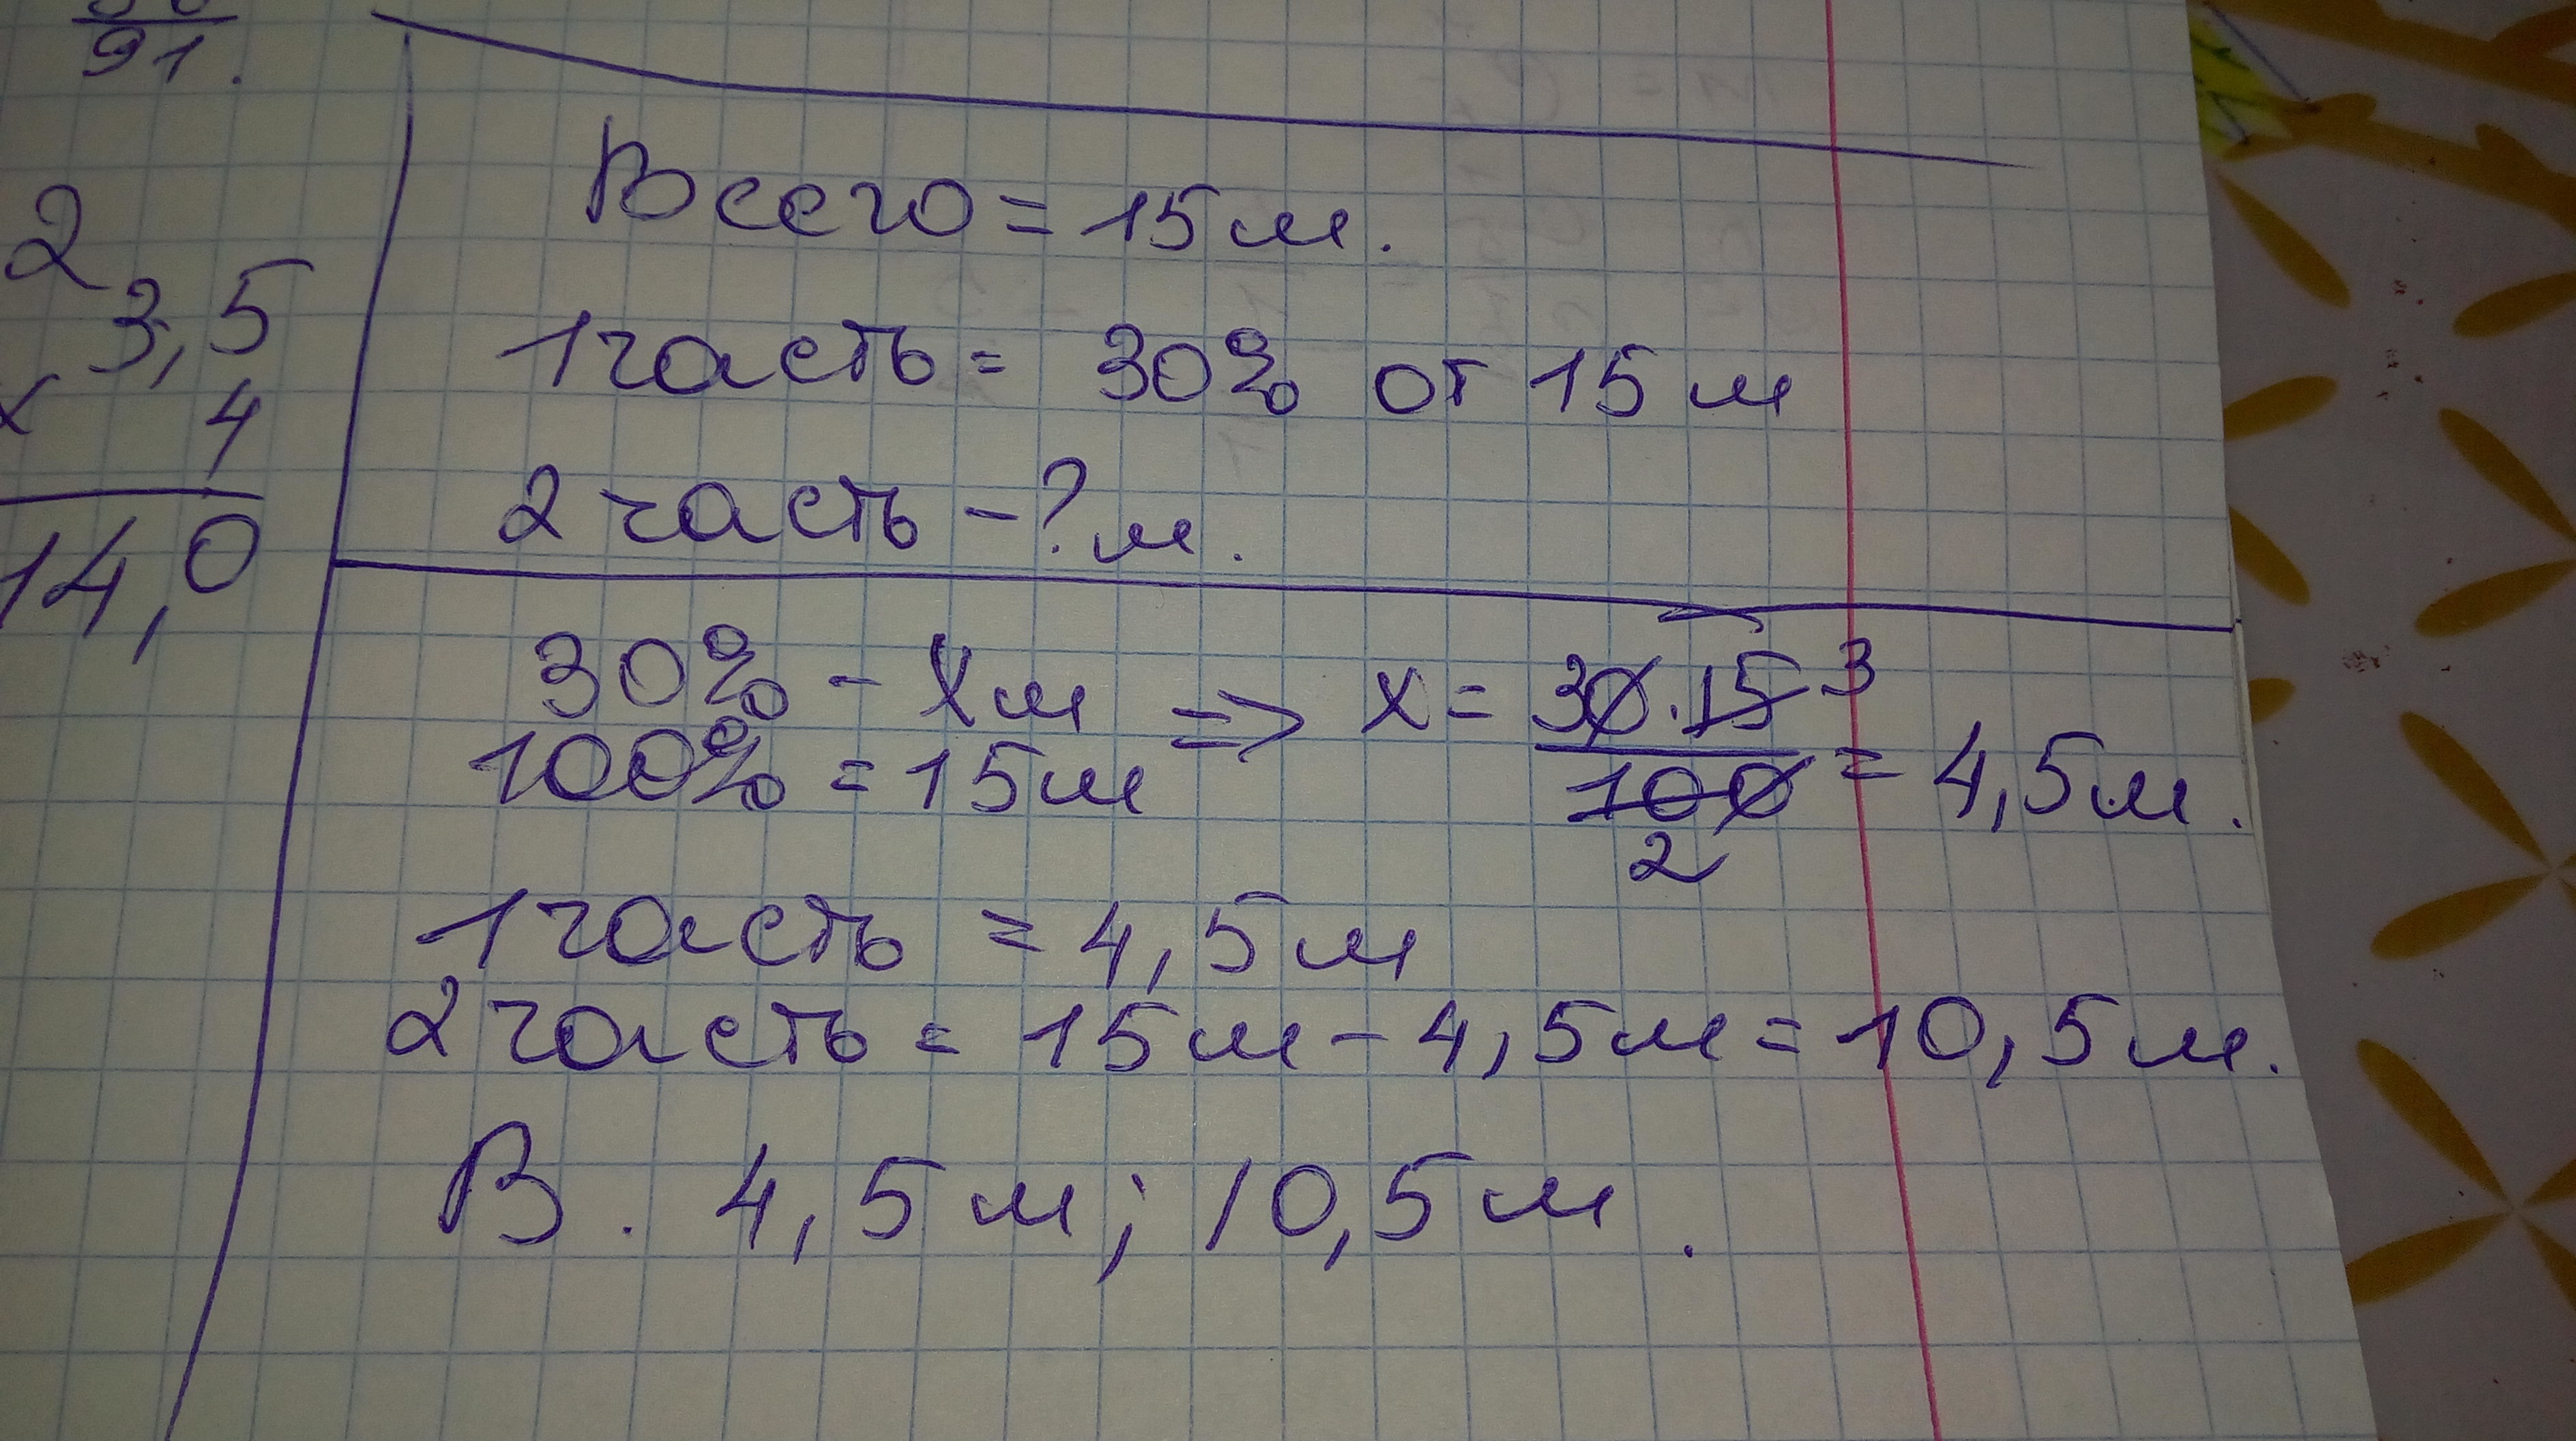 91.
2
3,5
× 4
14,0
Всего = 15 м.
1 часть = 30% от 15 м
2 часть - ? м.
30% - x м => x = 30·15 3
100% = 15 м 100 = 4,5 м.
2
1 часть = 4,5 м
2 часть = 15 м - 4,5 м = 10,5 м.
В. 4,5 м; 10,5 м.